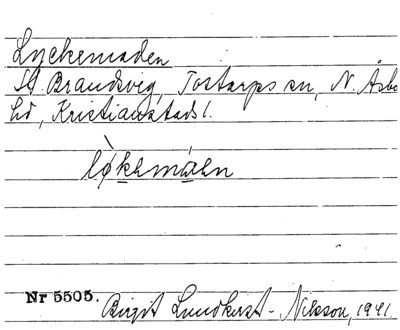 Lyckemaden
St. Brandsvig, Tostarps sn, N. Åsbo
hd, Kristianstads l.
lỳkemáen
Nr 5505.
Birgit Lundkvist-Nilsson, 1941.